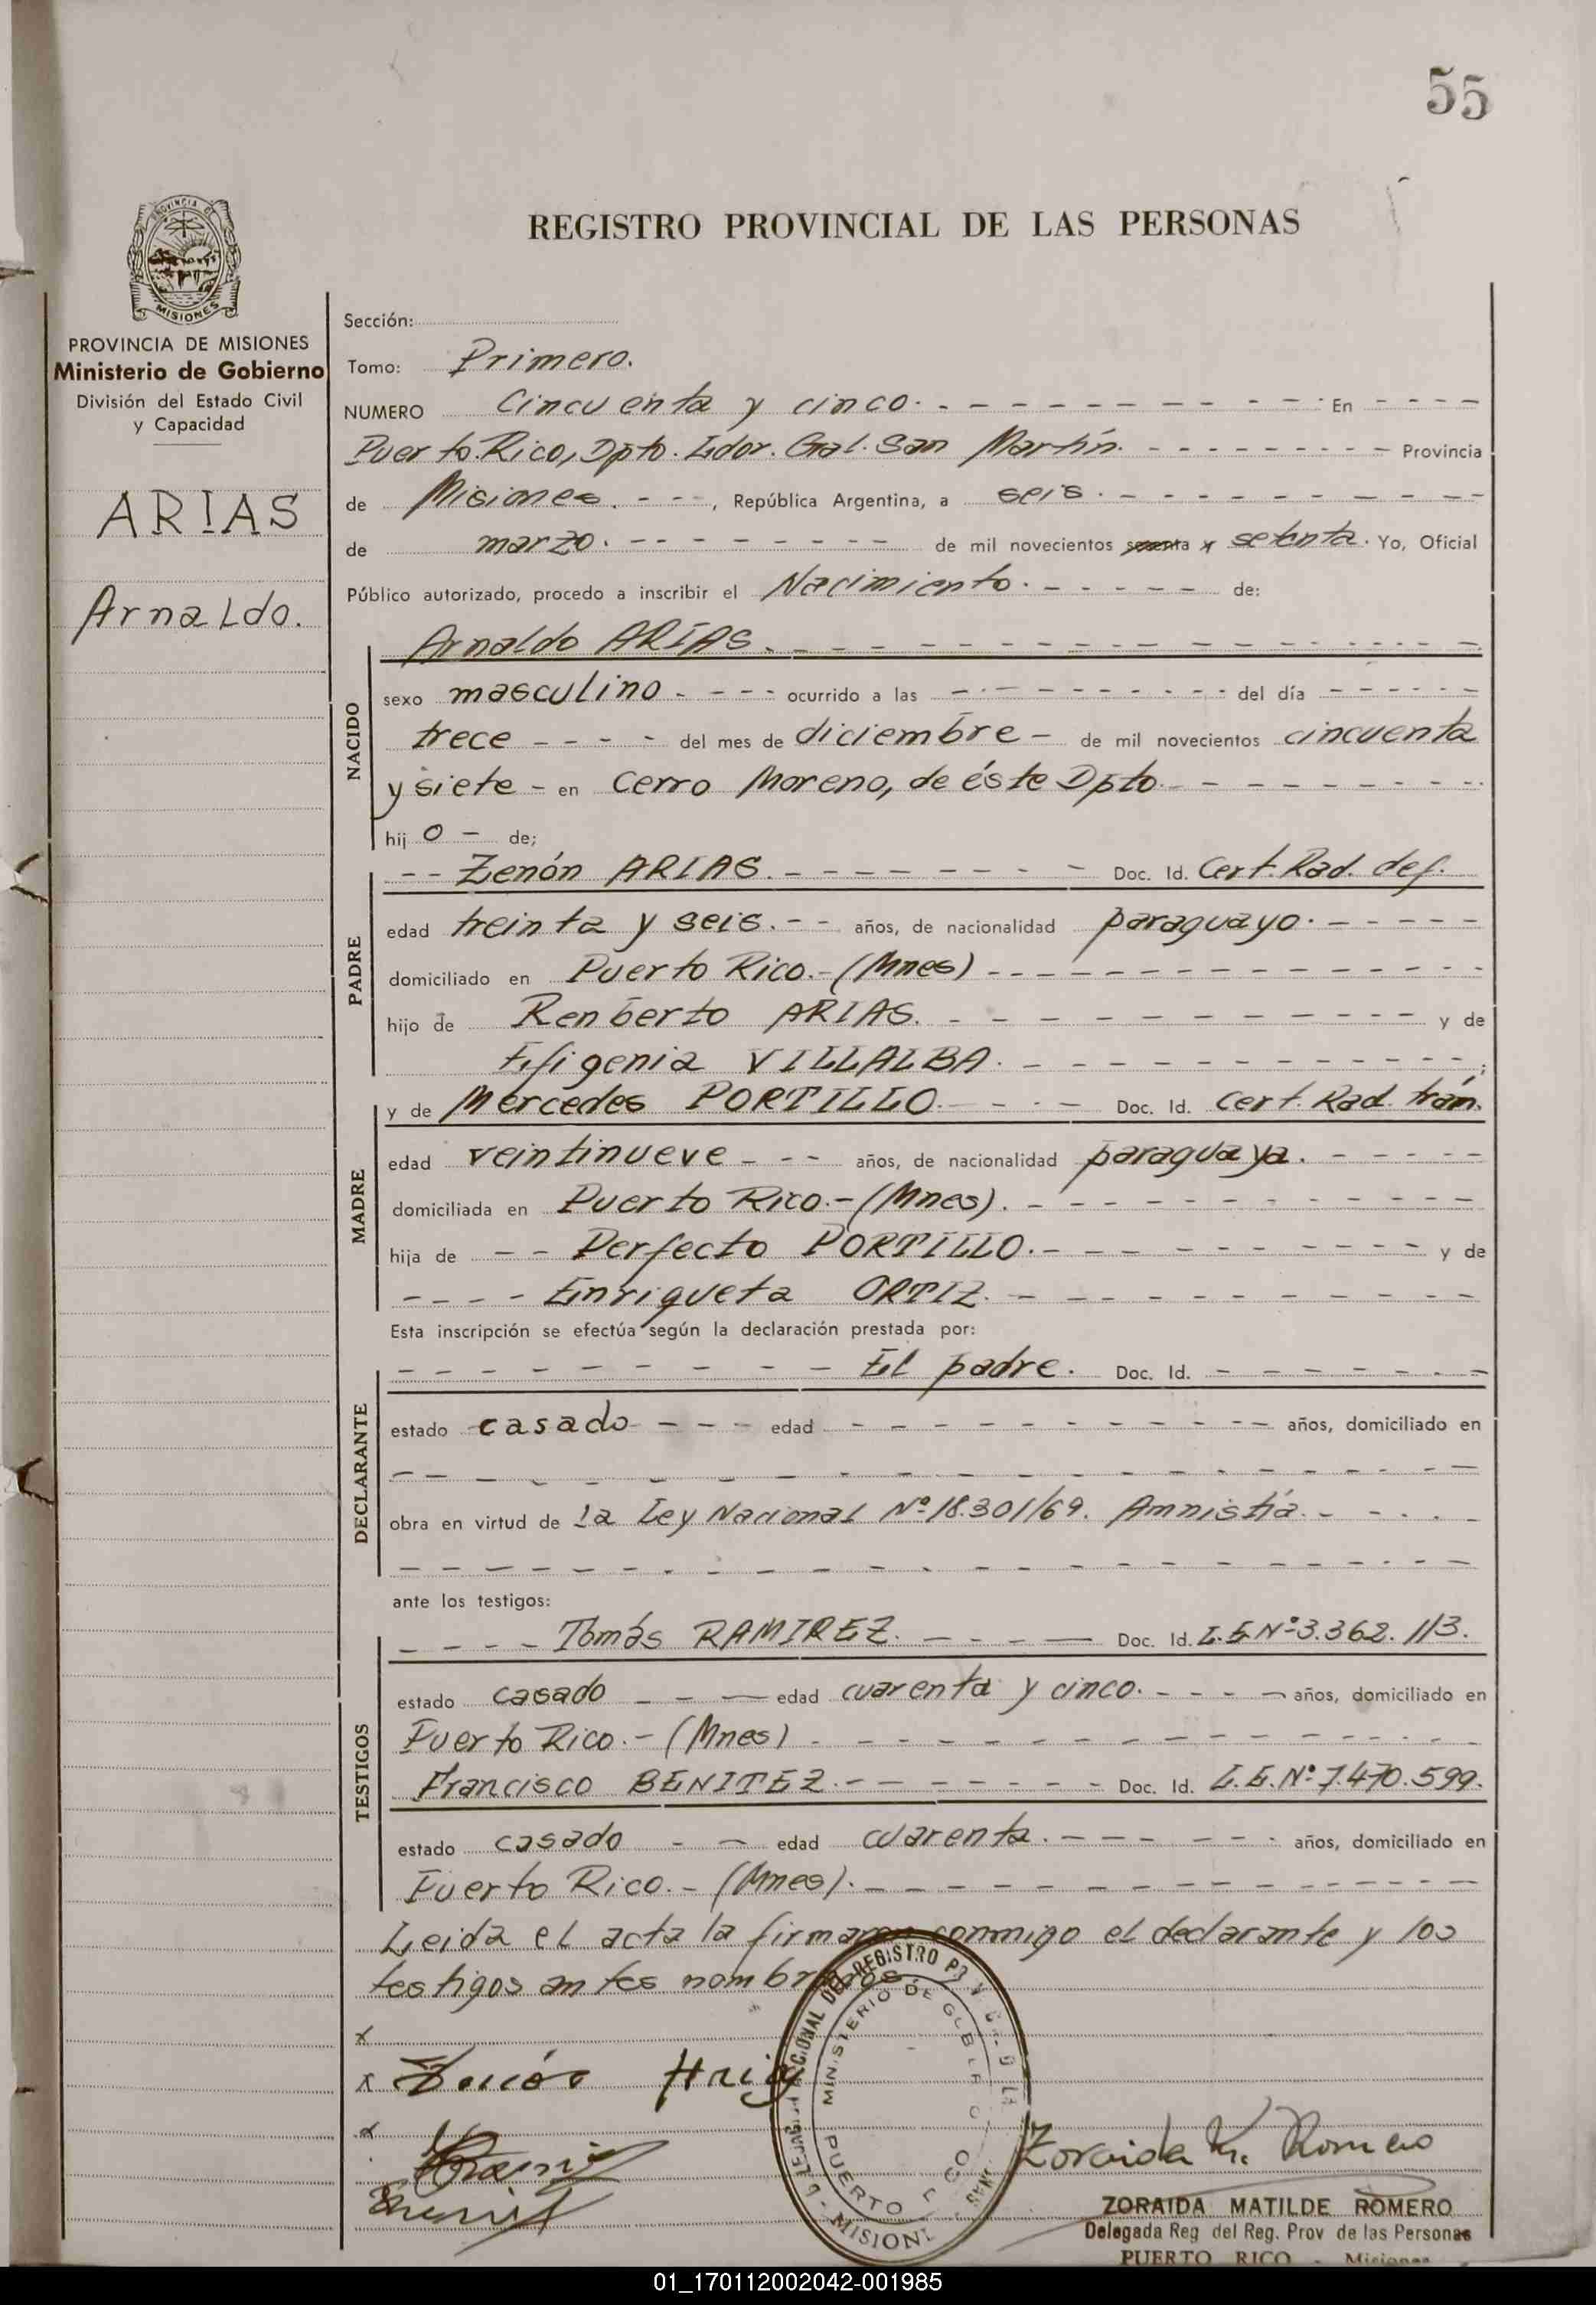 55
REGISTRO PROVINCIAL DE LAS PERSONAS
PROVINCIA DE MISIONES
PROVINCIA DE MISIONES
Ministerio de Gobierno
División del Estado Civil
y Capacidad
ARIAS
Arnaldo.
Sección:
Tomo: Primero.
NUMERO Cincuenta y cinco. - - - - - - - - - - En - - - -
Puerto Rico, Dpto. Ldor. Gral. San Martín. - - - - - - - - - Provincia
de Misiones. - - -, República Argentina, a seis. - - - - - - - - -
de marzo. - - - - - - - - de mil novecientos sesenta y setenta. Yo, Oficial
Público autorizado, procedo a inscribir el Nacimiento. - - - - - de:
Arnaldo ARIAS. - - - - - - - - - - - - - -
NACIDO
sexo masculino - - - - ocurrido a las - - - - - - - - - - del día - - - - -
trece - - - - del mes de diciembre - de mil novecientos cincuenta
y siete - en Cerro Moreno, de éste Dpto. - - - - - - - -
hij o - de;
PADRE
- - Zenón ARIAS. - - - - - - - - Doc. Id. Cert. Rad. def.
edad treinta y seis. - - años, de nacionalidad paraguayo. - - - - -
domiciliado en Puerto Rico. - (Mnes) - - - - - - - - - - - - -
hijo de Renberto ARIAS. - - - - - - - - - - - y de
Efigenia VILLALBA. - - - - - - - - - - - ;
MADRE
y de Mercedes PORTILLO. - - - - Doc. Id. Cert. Rad. trám.
edad veintinueve - - - años, de nacionalidad paraguaya. - - - - -
domiciliada en Puerto Rico. - (Mnes). - - - - - - - - - - - -
hija de - - Perfecto PORTILLO. - - - - - - - - - - y de
- - - - Enriqueta ORTIZ. - - - - - - - - - - -
Esta inscripción se efectúa según la declaración prestada por:
DECLARANTE
- - - - - - - - - - El padre. Doc. Id. - - - - - - -
estado casado - - - - edad - - - - - - - - - - - años, domiciliado en
- - - - - - - - - - - - - - - - - - - -
obra en virtud de la Ley Nacional Nº 18.301/69. Amnistía. - - - - -
- - - - - - - - - - - - - - - - - - - -
ante los testigos:
TESTIGOS
- - - - Tomás RAMIREZ. - - - - Doc. Id. L.E. Nº 3.362.113.
estado casado - - - edad cuarenta y cinco. - - - - años, domiciliado en
Puerto Rico. - (Mnes) - - - - - - - - - - - - - -
Francisco BENITEZ. - - - - - - - - Doc. Id. L.E. Nº 7.470.599.
estado casado - - edad cuarenta. - - - - - - - años, domiciliado en
Puerto Rico. - (Mnes). - - - - - - - - - - - - -
Leida el acta la firman conmigo el declarante y los
testigos antes nombrados.
x
x Zenón Arias
x
Zoraida M. Romero
MINISTERIO DE GOBIERNO
PUERTO RICO
MISIONES
ZORAIDA MATILDE ROMERO
Delegada Reg del Reg. Prov de las Personas
PUERTO RICO - Misiones
01_170112002042-001985